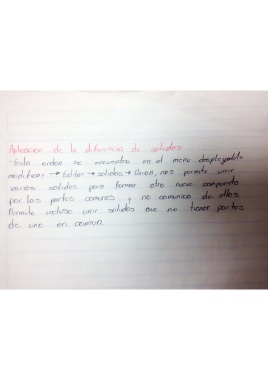 Aplicacion de la diferencia de solidos
-Esta orden se encuentra en el menu desplegable
modificar → Editar → solidos → Union, nos permite unir
varios solidos para formar otro nuevo compuesto
por las partes comunes y no comunico de ellos
Permite incluso unir solidos que no tienen partes
de uno en comun.